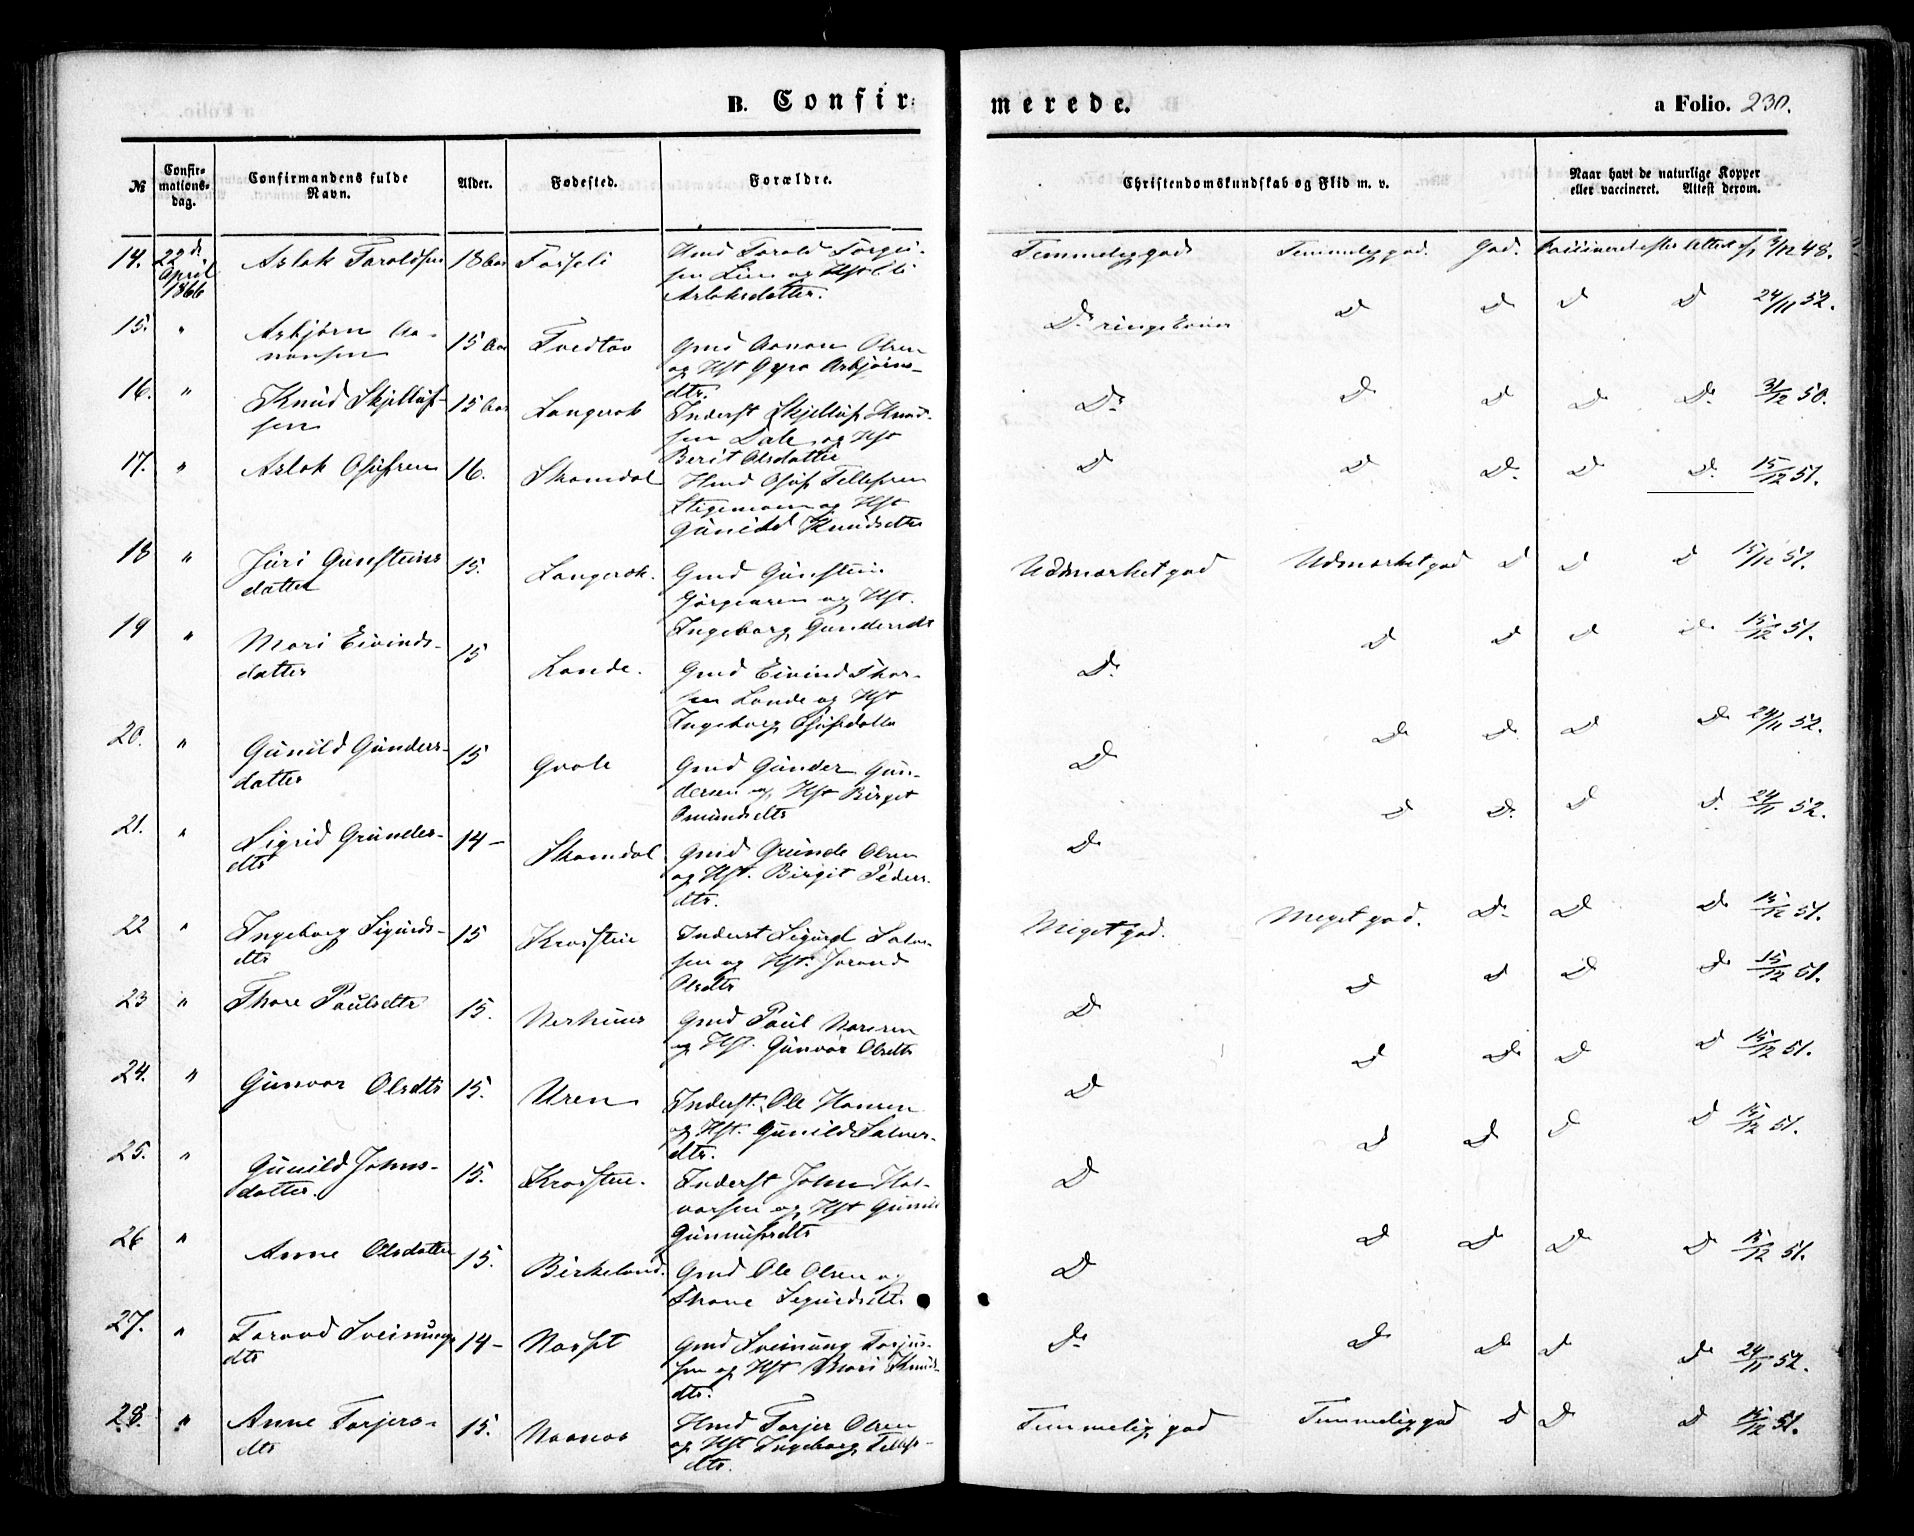 B. Confir-
merede.
a Folio. 230.
№
Confir-
mations-
dag.
Confirmandens fulde
Navn.
Alder.
Fødested.
Forældre.
Christendomskundskab og Flid m. v.
Naar havt de naturlige Kopper
eller vaccineret. Attest derom.
14. 22de April 1866 Aslak Taraldsen 18 Aar Fosseli
Hmd Tarald Torgri-
sen Lien og Hst
Aslaksdatter.
Temmelig god Temmelig god. god. Vaccineret efter Attest af 7/12 48.
15. " Asbjørn Aa-
nonsen 15 Aar Tvedtoo
Gmd Aanon Olsen
og Hst Gyro Asbjørns-
dtr.
Do ringe D D D D 24/11 52.
16. " Knud Skjelluf-
sen 15 Aar Langerak
Inderst Skjelluf Knud-
sen Dale og Hst
Berit Olsdatter
Do D D D Do 31/12 50.
17. " Aslak Osufsen 16. Skomdal
Hmd Osuf Tellefsen
Stigemoen og Hst
Gunild Knudsdtr
D D D. D D. 15/12 51.
18 " Juri Gunsteins
datter 15. Langerak.
Gmd Gunstein
og Hst.
Ingeborg Gundersdt
Udmærket god Udmærket god D D D 15/12 51.
19 " Mari Eivinds-
datter 15 Lande.
Gmd Eivind Thor-
sen Lande og Hst
Ingeborg Osufsdatter
D. D D D D 15/12 51.
20. " Gunild Gunders-
datter 15 Qvale
Gmd Gunder Gun-
dersen og Hst Birget
Omundsdtr
D D D D D 24/11 52.
21. " Sigrid Grunder-
dtr 14 – Skomdal
Gmd Grunde Olsen
og Hst. Birgit Peders-
dtr.
D D D. D D. 24/11 52.
22 " Ingeborg Sigurds-
dtr 15
Inderst Sigurd Salve-
sen og Hst. Jorand
Olsdtr
Meget god. Meget god. D D D 15/12 51.
23 " Thore Paulsdtr 15. Nerhuus
Gmd Paul
og Hst. Gunvor Olsdtr
D D D D D 15/12 51.
24. " Gunvor Olsdtr 15. Uren
Inderst. Ole Hansen
og Hst. Gunild Salves-
dtr.
D D D D D 15/12 51.
25. " Gunild Johns-
datter. 15.
Inderst John Hal-
vorsen og Hst Gunild
Gunnufsdtr
D D D D D 15/12 51.
26 " Anne Olsdatter 15. Birkeland.
Gmd Ole Olsen og
Thone Sigurdsdtr
D D D D D 15/12 51.
27. " Torand Sveinungs
dtr 14 –
Gmd Sveinung Torjus-
sen og Hst Mari Knuds-
dtr.
Do D D D D 24/11 52.
28. " Anne Torjers-
dtr 15.
Hmd Torjer Olsen
og Hst Ingeborg Tellefs-
dtr.
Temmelig god Temmelig god D D D 15/12 51.